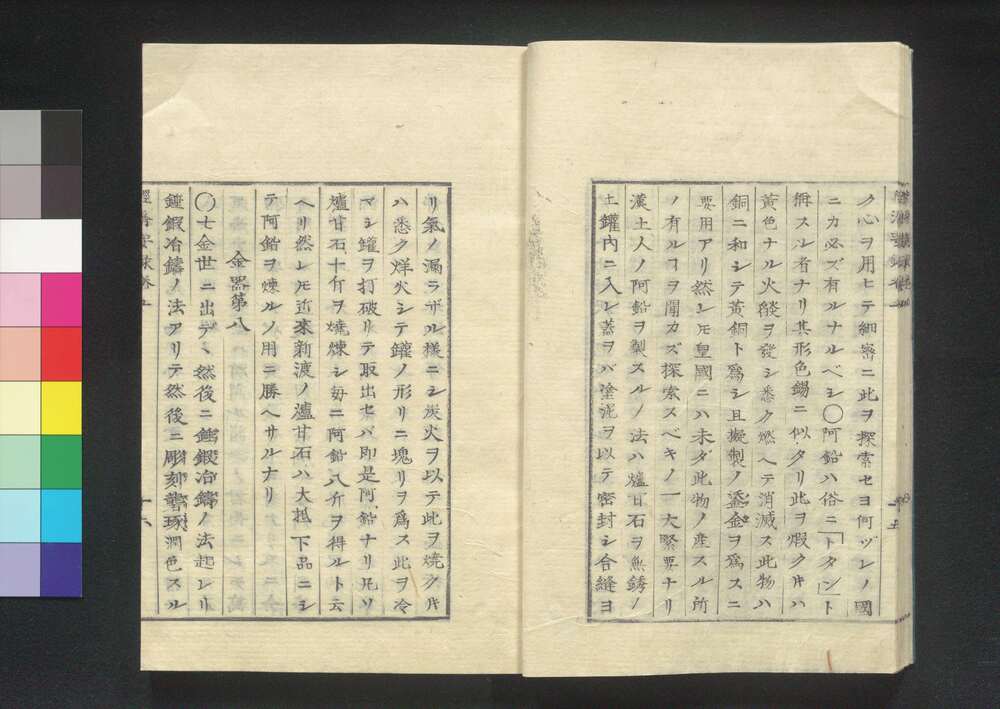 ク心ヲ用ヒテ細密ニ此ヲ探索セヨ何ヅレノ國
ニカ必ズ有ルナルベシ〇阿鉛ハ俗ニ「トタン」ト
稱スル者ナリ其形色錫ニ似タリ此ヲ煆クキハ
黄色ナル火燄ヲ發シ悉ク燃ヘテ消滅ス此物ハ
銅ニ和シテ黄銅ト爲シ且擬製ノ鍌金ヲ爲スニ
要用アリ然シモ皇國ニハ未ダ此物ノ産スル所
ノ有ルヿヲ聞カズ探索スベキノ一大緊要ナリ
漢土人ノ阿鉛ヲ製スルノ法ハ爐甘石ヲ無銹ノ
土鑵内ニ入レ蓋ヲバ塗泥ヲ以テ密封シ合縫ヨ
十五
リ氣ノ漏ラザル樣ニシ炭火ヲ以テ此ヲ燒クキ
ハ悉ク烊火シテ鑵ノ形リニ塊リヲ爲ス此ヲ冷
マシ鑵ヲ打破リテ取出セバ即是阿鉛ナリ凡ソ
爐甘石十斤ヲ燒煉シ毎ニ阿鉛八斤ヲ得ルト云
ヘリ然レㇳモ近來新渡ノ爐甘石ハ大抵下品ニシ
テ阿鉛ヲ煉ルノ用ニ勝ヘサルナリ
金器第八
〇七金世ニ出デヽ然後ニ錘鍛冶鑄ノ法起レリ
錘鍛冶鑄ノ法アリテ然後ニ彫刻礱琢潤色スル
十六